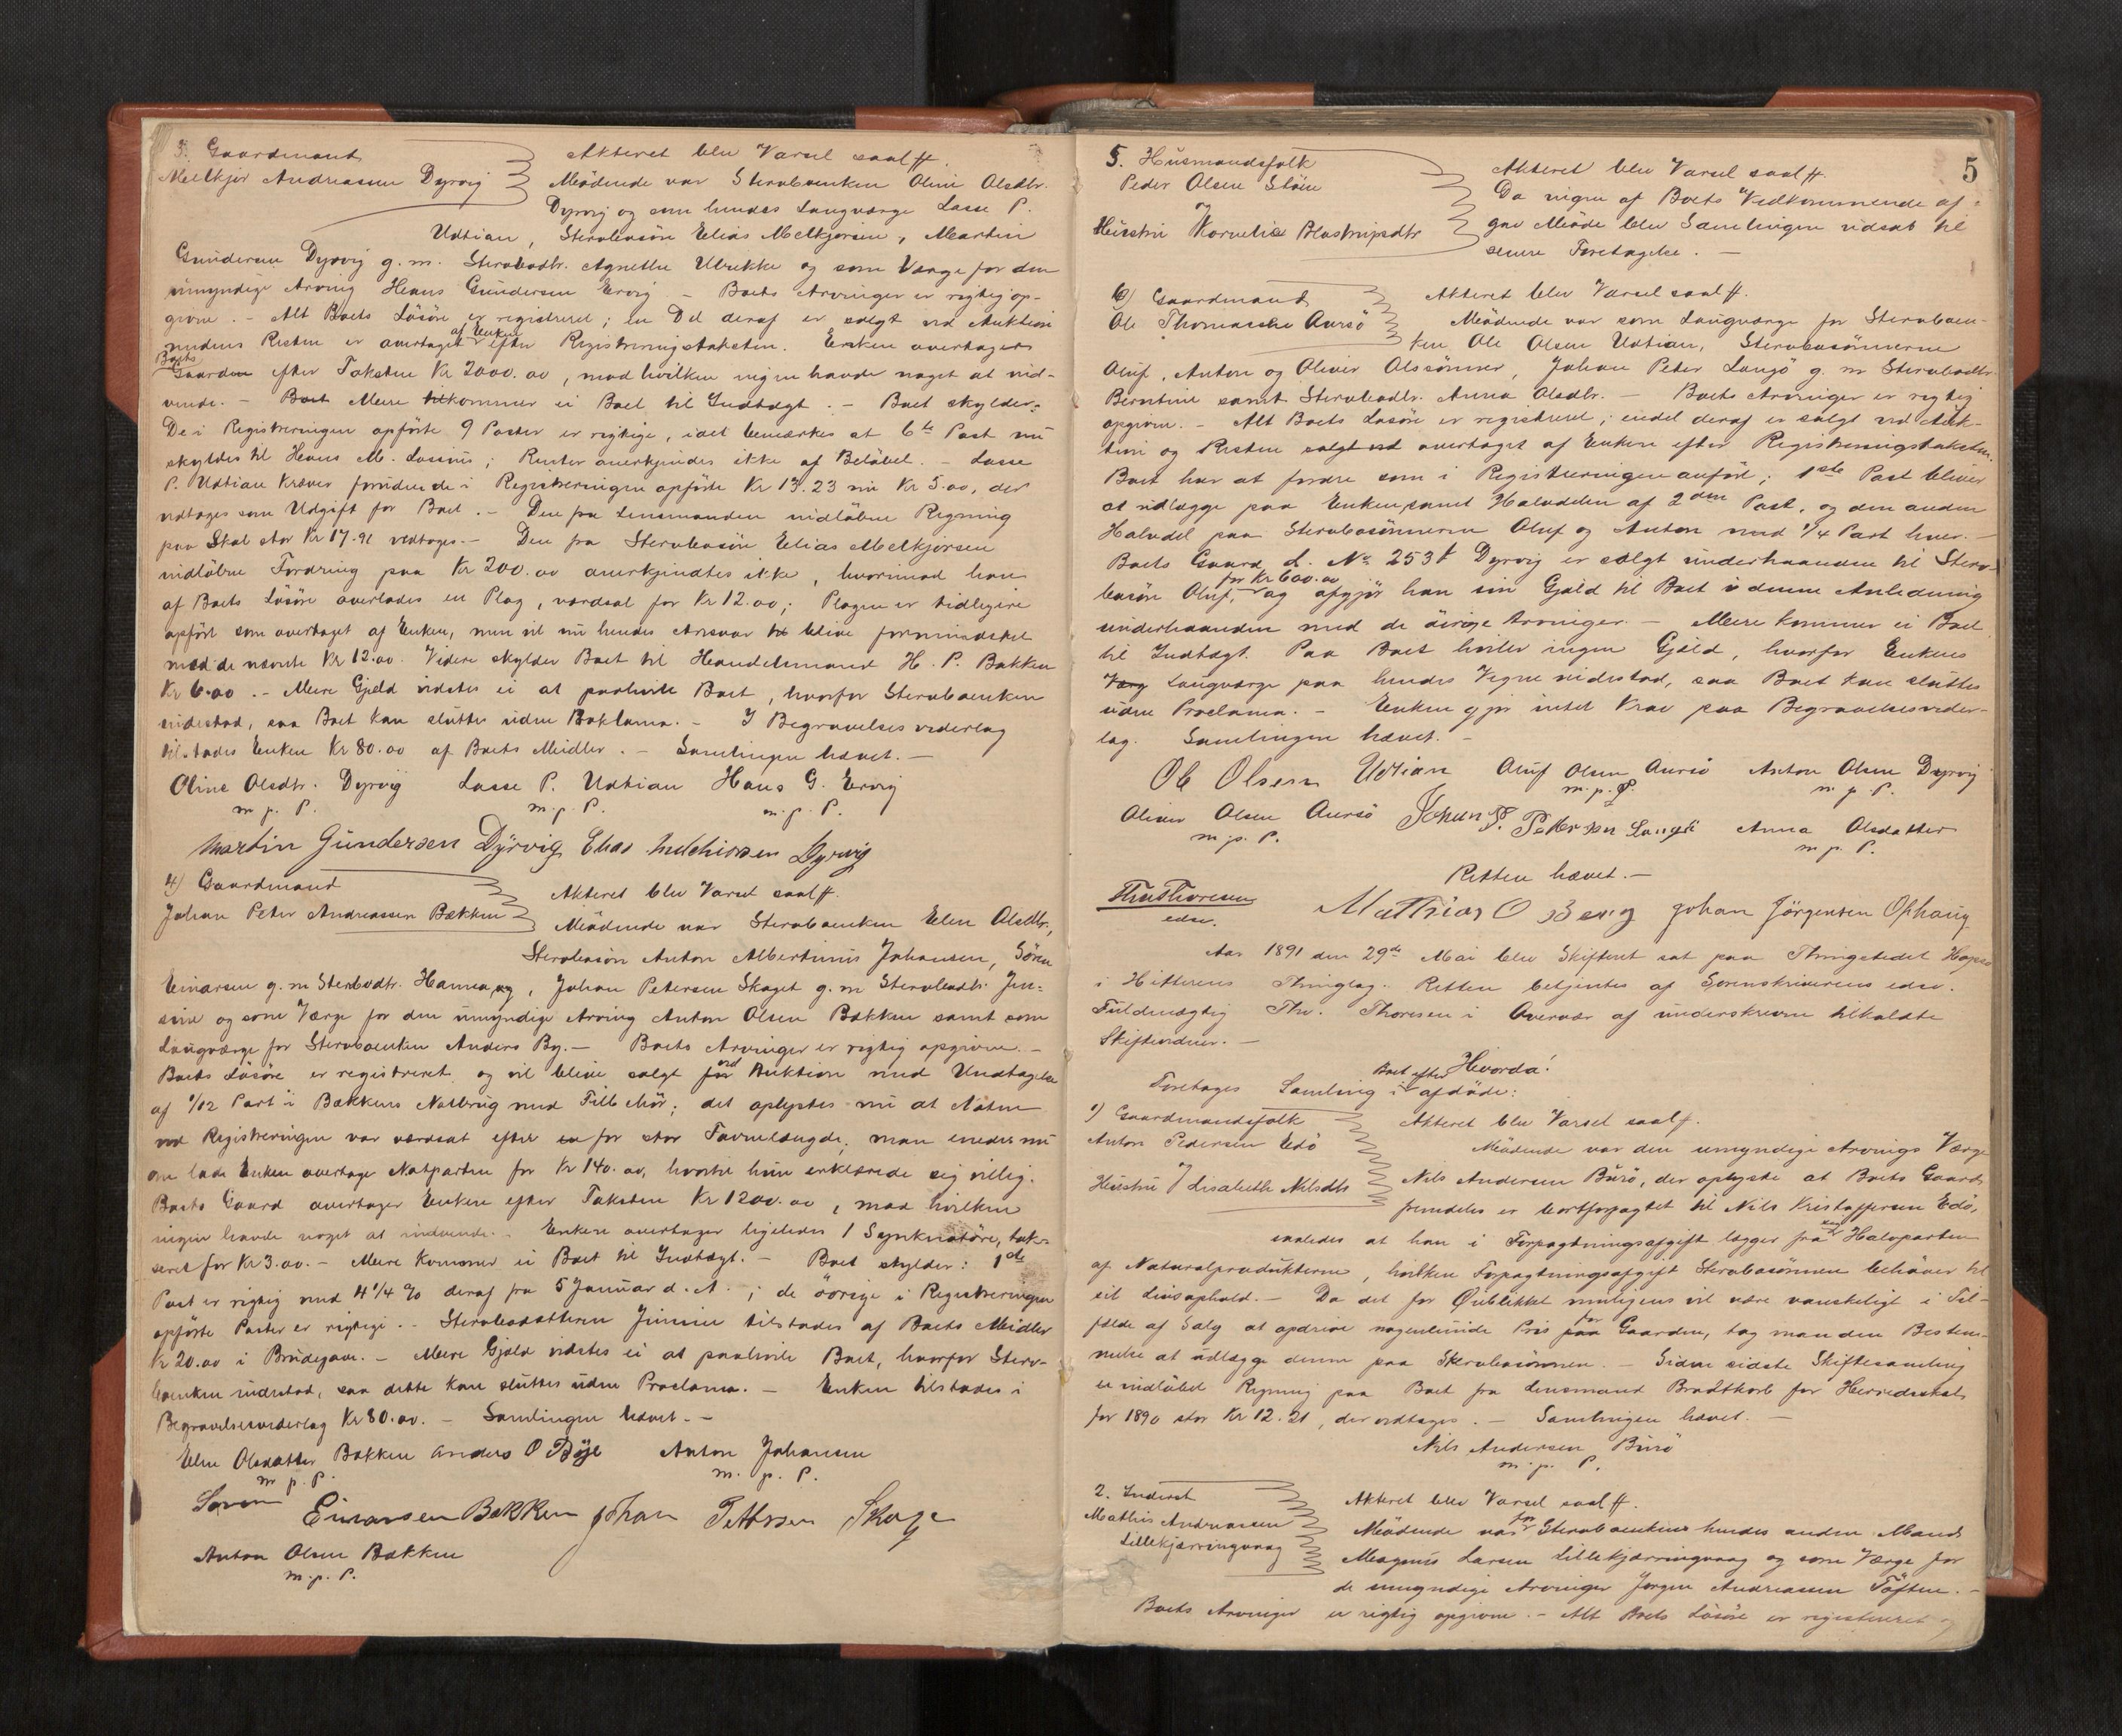 3. Gaardmand
Melkjor Andreassen Dyrvig
Akteret blev Varsel saalt.
Mödende var Stervboenken Oline Olsdtr.
Dyrvig og som hendes Laugværge Lasse P.
Udtian, Stervbosön Elias Melkjorsen, Martin
Gundersen Dyrvig g. m. Stervbodtr. Agnethe Ulrikke og som Værge for den
umyndige Arving Hans Gundersen Ervig – Boets Arvinger er rigtig op-
givne. – Alt Boets Lösöre er registreret; en Del deraf er solgt ved Auktion
medens Resten er overtaget af Enken efter Registreringstaksten. Enken overtager
Boets Gaarden efter Taksten Kr 2000.00, mod hvilken ingen havde noget at ind-
vende. – Boet Mere tilkommer ei Boet til Indtægt. – Boet skylder:
De i Registreringen opförte 9 Poster er rigtige, idet bemærkes at 6te Post nu
skyldes til Hans M. Lossius; Renter anerkjendes ikke af Belöbet. – Lasse
P. Udtian kræver foruden de i Registreringen opförte Kr 13.23 nu Kr 5.00, der
vedtages som Udgift for Boet. – Den fra Lensmanden indlöbne Regning
paa Skat stor Kr 17.91 vedtages. – Den fra Stervbosön Elias Melkjorsen
indlöbne Fordring paa Kr 200.00 anerkjendtes ikke, hvorimod han
af Boets Lösöre overlades en Plag, værdsat for Kr 12.00; Plagen er tidligere
opfört som overtaget af Enken, men vil nu hendes Ansvar blive formindsket
med de nævnte Kr 12.00. Videre skylder Boet til Handelsmand H. P. Bakken
Kr 6.00. – Mere Gjeld vidstes ei at paahvile Boet, hvorfor Stervboenken
indestod, saa Boet kan sluttes uden Proklama. – I Begravelsesvederlag
tilstodes Enken Kr 80.00 af Boets Midler. – Samlingen hævet. –
Oline Olsdtr. Dyrvig Lasse P. Udtian Hans G. Ervig
m. p. P. m. p. P. m. p. P.
Martin Gundersen Dÿrvig Elias Melchiorsen Dyrvig
4) Gaardmand
Johan Peter Andreassen Bækken
Akteret blev Varsel saalt.
Mödende var Stervboenken Elen Olsdtr.,
Stervbosön Anton Albertinius Johansen, Sören
Einarsen g. m Stervbodtr. Hanna, og, Johan Petersen Skaget g. m Stervbodtr. Jen-
sine og som Værge for den umyndige Arving Anton Olsen Bækken samt som
Laugværge for Stervboenken Anders By. – Boets Arvinger er rigtig opgivne. –
Boets Lösöre er registreret og vil blive solgt for ved Auktion med Undtagelse
af 1/12 Part i Bækkens Notbrug med Tilbehör; det oplystes nu at Noten
ved Registreringen var værdsat efter en for stor Favnelængde; man enedes nu
om lade Enken overtage Notparten for Kr 140.00, hvortil hun erklærede sig villig.
Boets Gaard overtager Enken efter Taksten Kr 1200.00, mod hvilken
ingen havde noget at indvende. – Enken overtager ligeledes 1 Synknotöre, tak-
seret for Kr 3.00. – Mere kommer ei Boet til Indtægt. – Boet skylder: 1ste
Post er rigtig med 4 1/4 % deraf fra 5 Januar d. A.; de övrige i Registreringen
opförte Poster er rigtige. – Stervbodatteren Jensine tilstodes af Boets Midler
Kr 20.00 i Brudegave. – Mere Gjeld vidstes ei at paahvile Boet, hvorfor Sterv-
boenken indestod, saa dette kan sluttes uden Proclama. – Enken tilstodes i
Begravelsesvederlag Kr 80.00. – Samlingen hævet. –
Elen Olsdatter Bækken Anders O Bÿe Anton Johansen
m p. P. m. p. P.
Soren Einarsen Bekken Johan Petersen Skage
Anton Olsen Bækken
m. p. P.
5
5. Husmandsfolk
Peder Olsen Stöen
og
Hustru Kornelia
Akteret blev Varsel saalt.
Da ingen af Boets Vedkommende af-
gav Möde blev Samlingen udsat til
senere Foretagelse. –
6) Gaardmand
Ole Thomassen Aursö
Akteret blev Varsel saalt.
Mödende var som Laugværge for Stervboen-
ken Ole Olsen Udtian, Stervbosönnerne
Oluf, Anton og Oliver Olssönner, Johan Peter Langö g. m Stervbodtr.
Berntine samt Stervbodtr. Anna Olsdtr. – Boets Arvinger er rigtig
opgivne. – Alt Boets Lösöre er registreret; endel deraf er solgt ved Auk-
tion og Resten solgt ved overtaget af Enken efter Registreringstaksten.
Boet har at fordre som i Registreringen anfört; 1ste Post bliver
at udlægge paa Enken, samt Halvdelen af 2den Post, og den anden
Halvdel paa Stervbosönnerne Oluf og Anton med 1/4 Part hver. –
Boets Gaard L. No 253 Dyrvig er solgt underhaanden til Sterv-
bosön Oluf, for Kr 600.00 og afgjör han sin Gjeld til Boet i denne Anledning
underhaanden med de övrige Arvinger. – Mere kommer ei Boet
til Indtægt. Paa Boet hviler ingen Gjeld, hvorfor Enkens
Værg Laugværge paa hendes Vegne indestod, saa Boet kan sluttes
uden Proclama. – Enken gjör intet Krav paa Begravelsesveder-
lag. Samlingen hævet. –
Ole Olsen Udtian Oluf Olsen Aursö Anton Olsen Dyrvig
m. p. P. m. p. P.
Oliver Olsen Aursö Johan P. Petersen Langö Anna Olsdatter
m. p. P. m p. P.
Retten hævet. –
Thv Thoresen
edsv.
Mathias O Berg Johan Jörgensen Ophaug
Aar 1891 den 29de Mai blev Skifteret sat paa Thingstedet Hopsö
i Hitterens Thinglag. Retten betjentes af Sorenskriverens edsv.
Fuldmægtig Thv. Thoresen i Overvær af underskrevne tilkaldte
Skiftevidner. –
Hvorda!
Foretages Samling i Boet efter afdöde:
1) Gaardmandsfolk
Anton Pedersen Edö
og
Hustru Lisabeth Nilsdtr
Akteret blev Varsel saalt.
Mödende var den umyndige Arvings Værge
Nils Andersen Burö, der oplyste at Boets Gaard
fremdeles er bortforpagtet til Nils Kristoffersen Edö,
saaledes at han i Forpagtningsafgift lægger fra sig Halvparten
af Naturalprodukterne, hvilken Forpagtningsafgift Stervbosönnen behöver til
sit Livsophold. – Da det for Öieblikket muligens vil være vanskeligt i Til-
fælde af Salg at opdrive nogenlunde Pris paa for Gaarden, tog man den Bestem-
melse at udlægge denne paa Stervbosönnen. – Siden sidste Skiftesamling
er indlöbet Regning paa Boet fra Lensmand Brodtkorb for Herredsskat
for 1890 stor Kr 12.21, der vedtages. – Samlingen hævet. –
Nils Andersen Burö
m. p. P.
2. Inderst
Mathis Andreassen
Lillekjærringvaag
Akteret blev Varsel saalt.
Mödende var for Stervboenken hendes anden Mand
Magnus Larsen Lillekjærringvaag og som Værge for
de umyndige Arvinger Jörgen Andreassen Töften. –
Boets Arvinger er rigtig opgivne. – Alt Boets Lösöre er registreret og